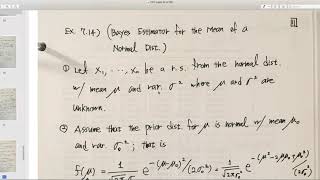 Ex. 7.14) (Bayes Estimator for the Mean of a
Normal Dist.)
① Let X₁, ⋯, Xₙ be a r.s. from the normal dist.
w/ mean μ and var. σ² where μ and σ² are
unknown.
② Assume that the prior dist. for μ is normal w/ mean μ₀
and var. σ₀² ; that is
f(μ) = 1/√(2π σ₀) e^(-(μ-μ₀)²/(2σ₀²)) = 1/√(2πσ₀²) e^(-(μ²-2μ₀μ+μ₀²)/(2σ₀²))